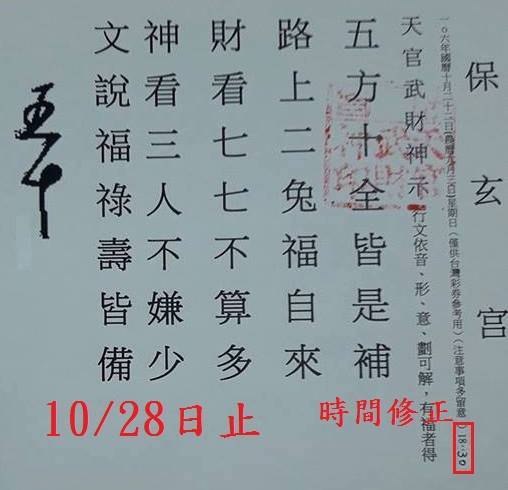 保玄宮
一0六年國曆十月二十二日(農曆九月三日)星期日(僅供台灣彩券參考用)(注意事項多留意)18:30
天官武財神示行文依音、形、意、劃可解，有福者得
五方十全皆是補
路上二兔福自來
財看七七不算多
神看三人不嫌少
文說福祿壽皆備
10/28日止
時間修正